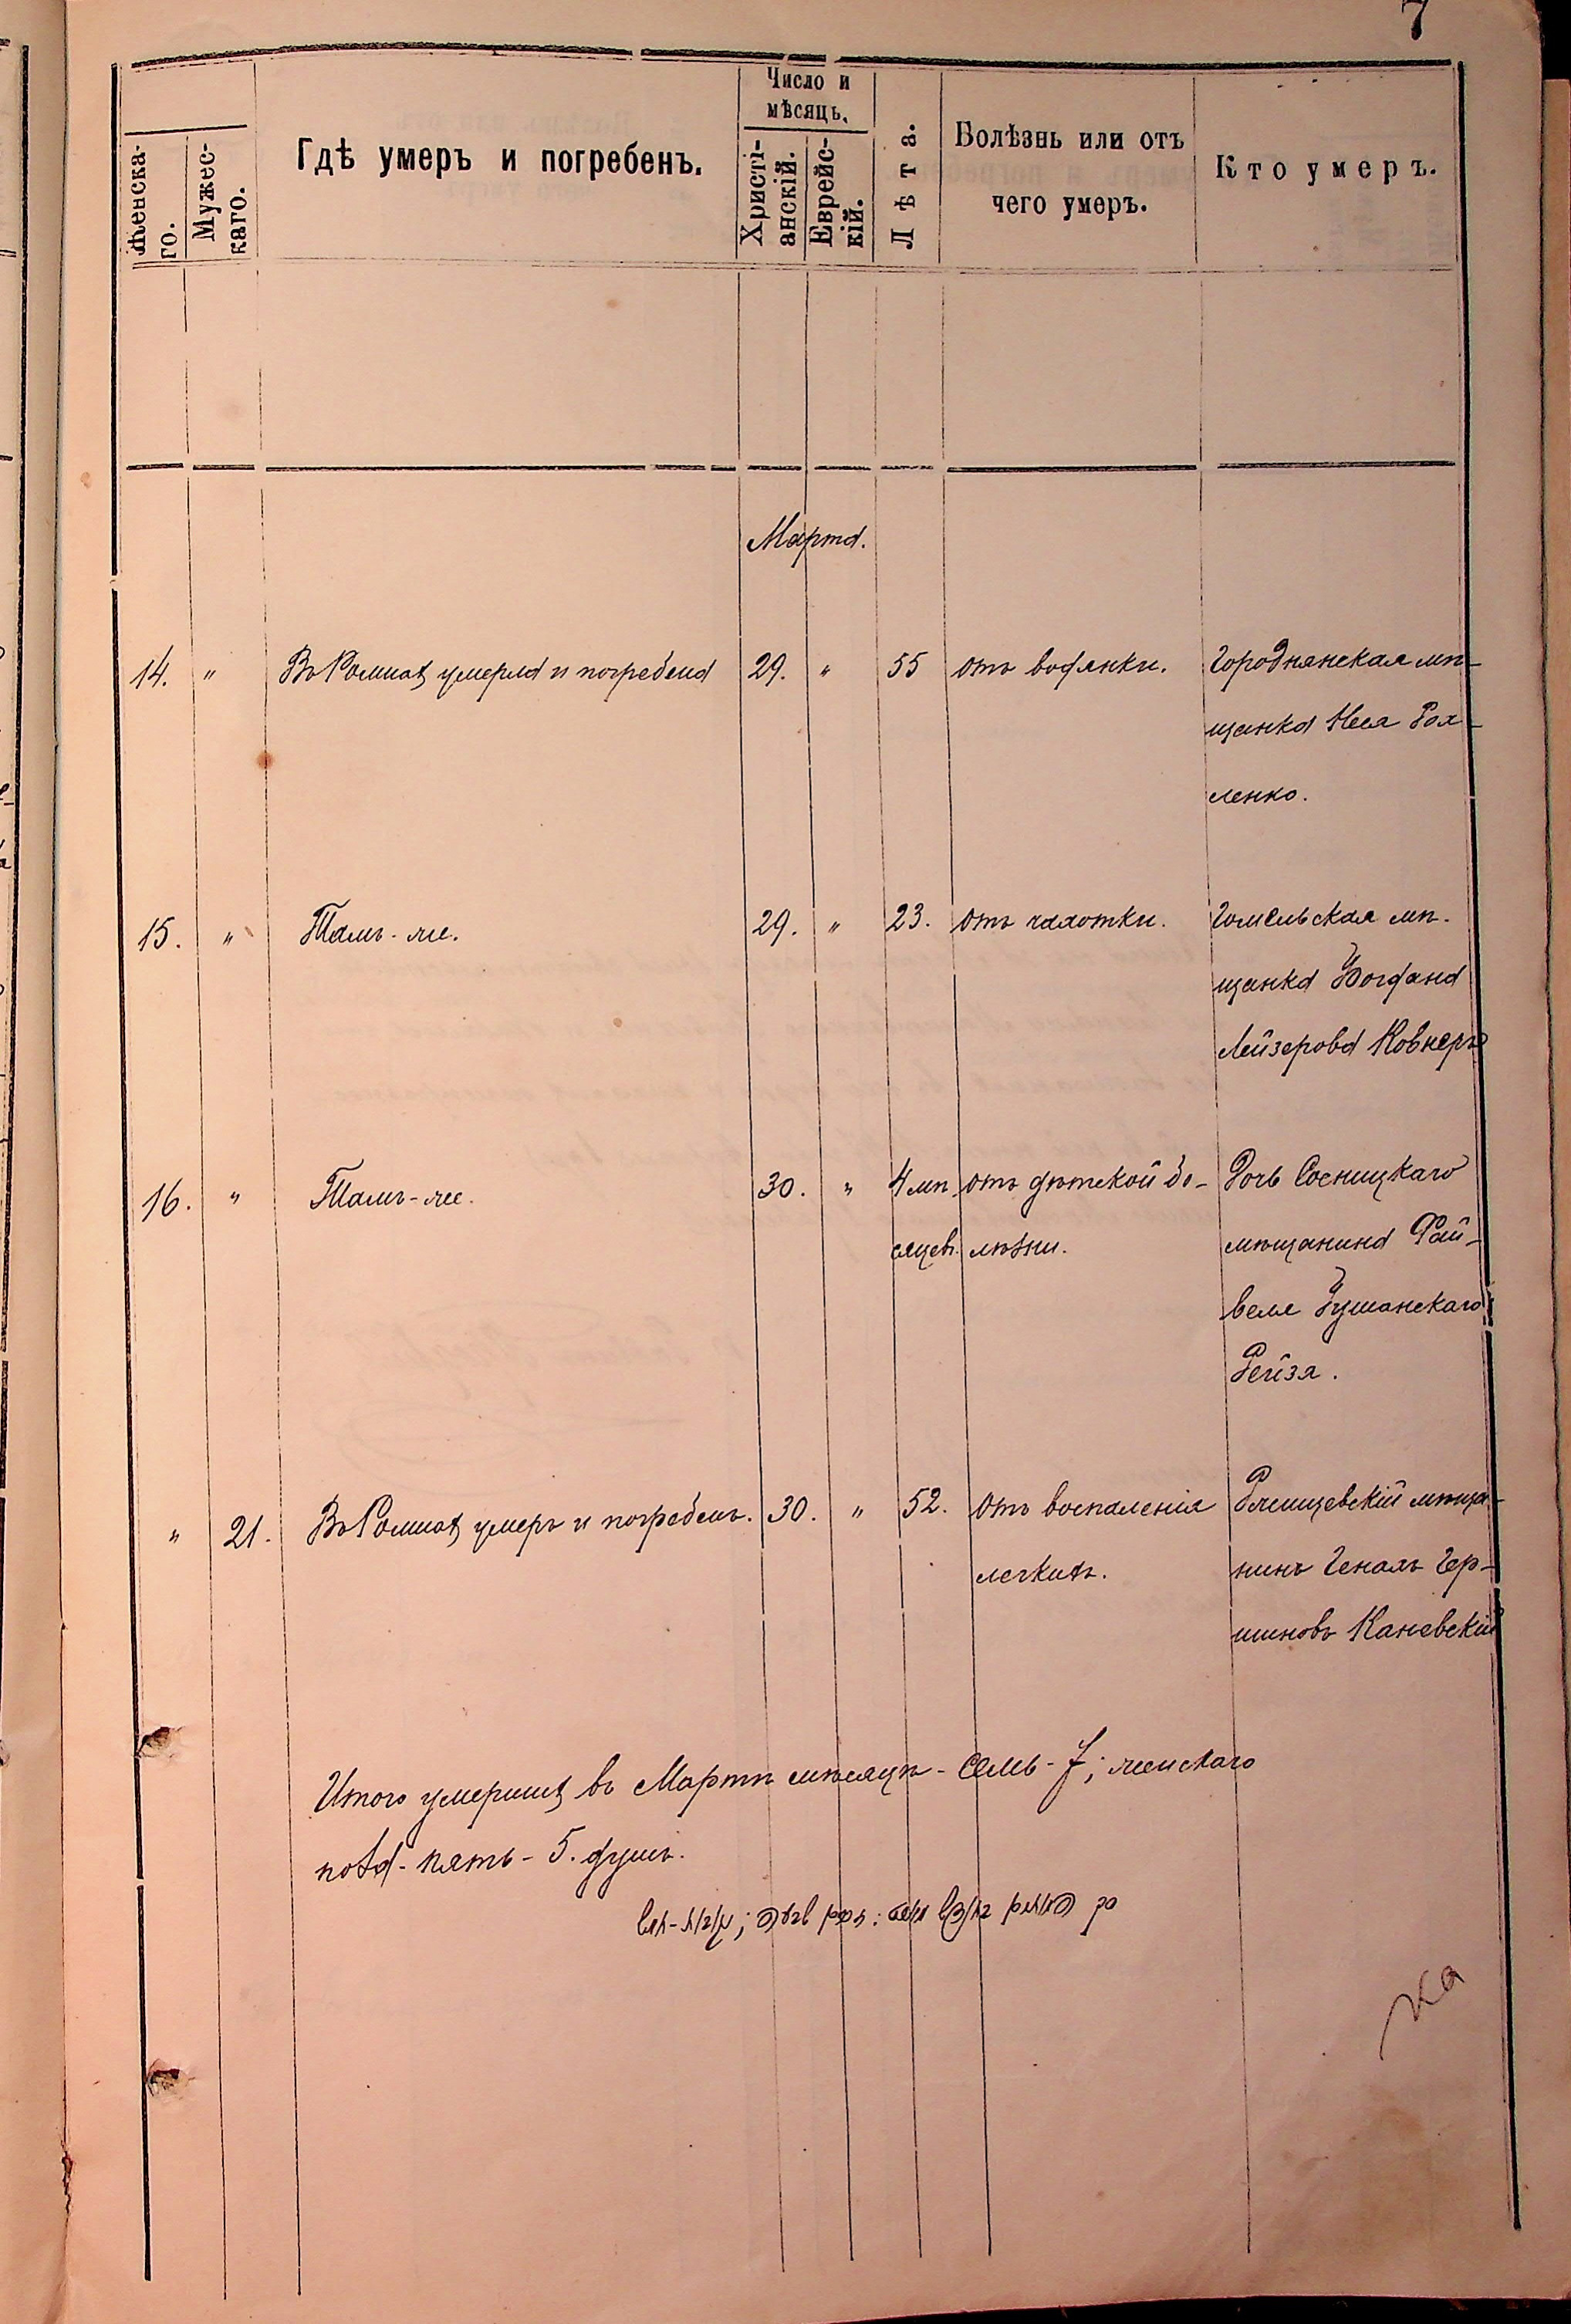 7
Женска-
го.
Мужес-
каго.
Гдѣ умеръ и погребенъ.
Число и
мѣсяцъ.
Христі-
анскій.
Еврейс-
кій.
Лѣта.
Болѣзнь или отъ
чего умеръ.
Кто умеръ.
Марта.
14. " Въ Ромнахъ умерла и погребена 29. " 55 отъ водянки. Городнянская мѣ-
щанка Неся
ленко.
15. " Тамъ-же. 29. " 23. отъ чахотки. Гомельская мѣ-
щанка Богдана
Лейзерова Ковнеръ
16. " Тамъ-же. 30. " 4 мѣ отъ дѣтской бо- Дочь Сосницкаго
сяцев. лѣзни. мѣщанина Фай-
веля Душанскаго
Рейзя.
" 21. Въ Ромнахъ умеръ и погребенъ. 30. " 52. отъ воспаленія мѣща-
легкихъ. нинъ Генахъ Гер-
шиновъ Каневскій
Итого умершихъ въ Мартѣ мѣсяцѣ - Семь - 7; женскаго
пола - пять - 5. душъ.